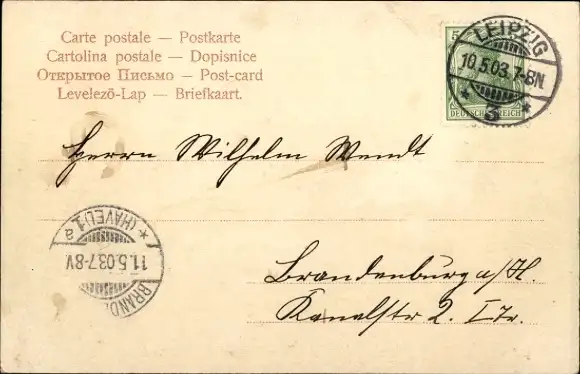 Carte postale — Postkarte
Cartolina postale — Dopisnice
Открытое Письмо — Post-card
Levelezö-Lap — Briefkaart.
5
DEUTSCHES REICH
LEIPZIG
10.5.03.7-8N
* 3 *
Herrn Wilhelm Wendt
BRAND
(HAVEL) 1
a
11.5.03.7-8V.
Brandenburg a/H.
Kanalstr 2. I Tr.